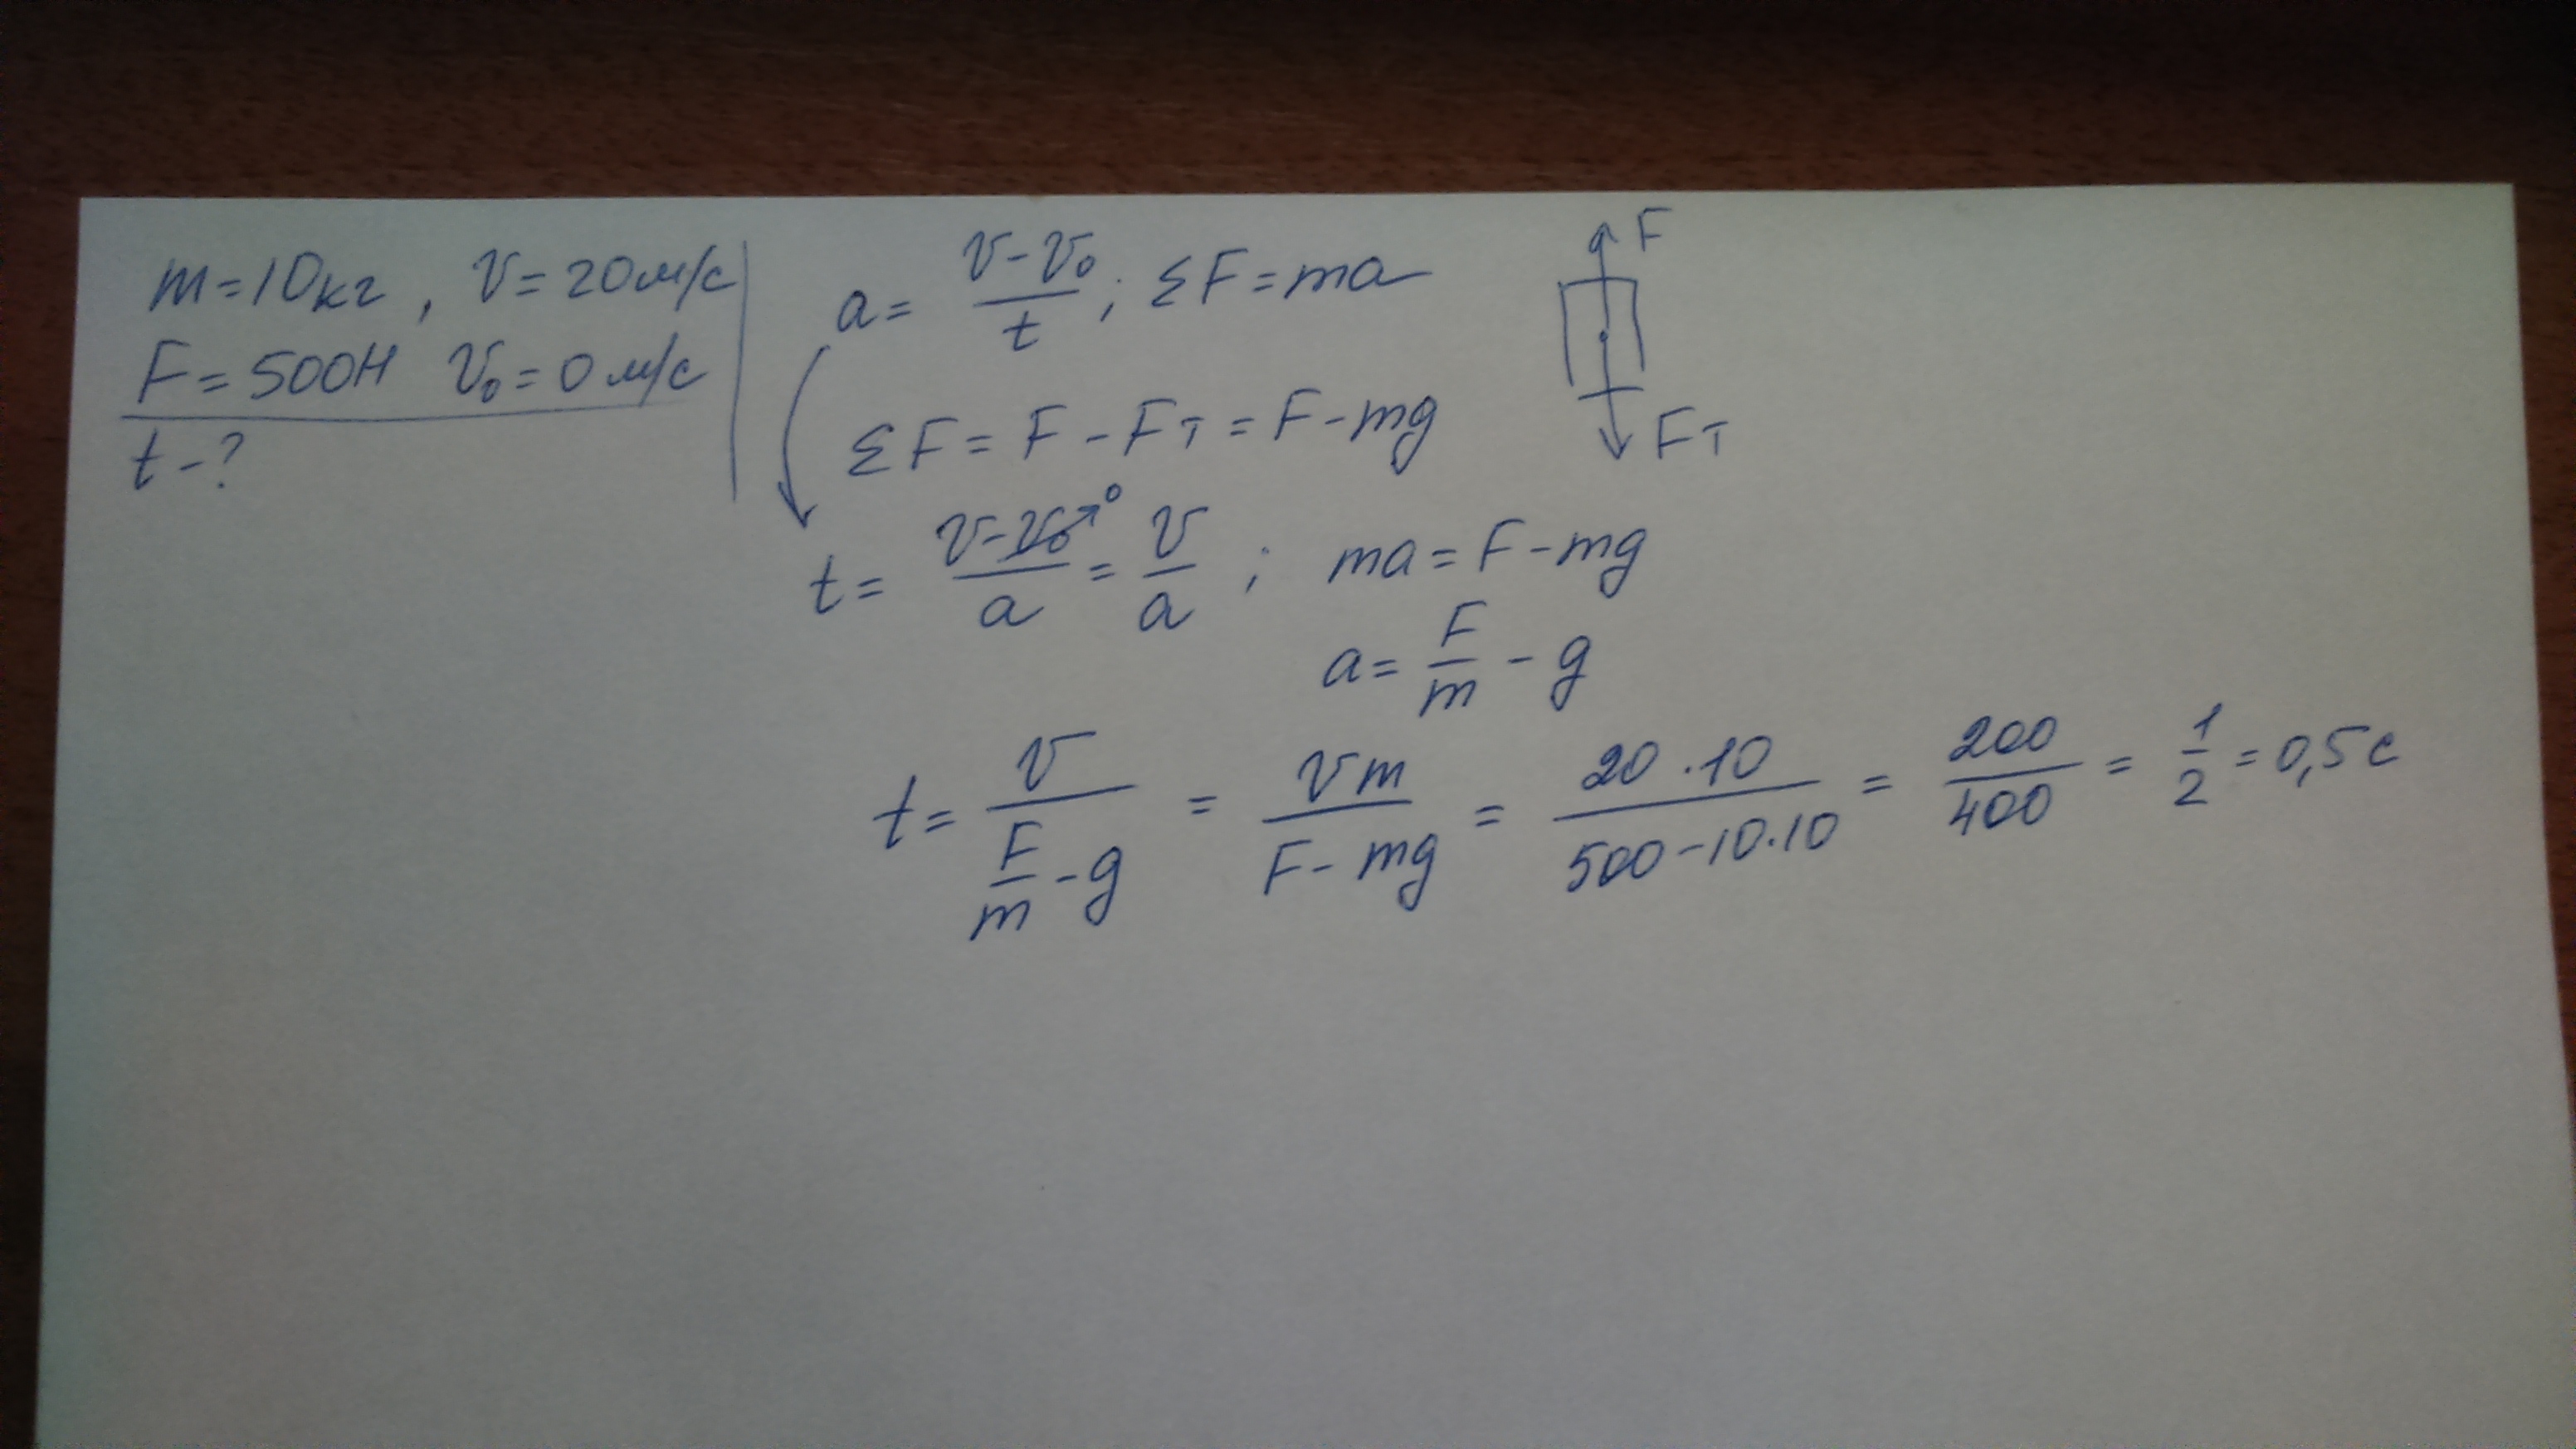 m=10кг, V=20м/с
F=500Н V₀=0м/с
t-?
a=(V-V₀)/t; ΣF=ma
ΣF=F-Fт=F-mg
t=(V-V₀→0)/a=V/a; ma=F-mg
a=F/m-g
t=V/(F/m-g)=Vm/(F-mg)=20·10/(500-10·10)=200/400=1/2=0,5с
F
Fт